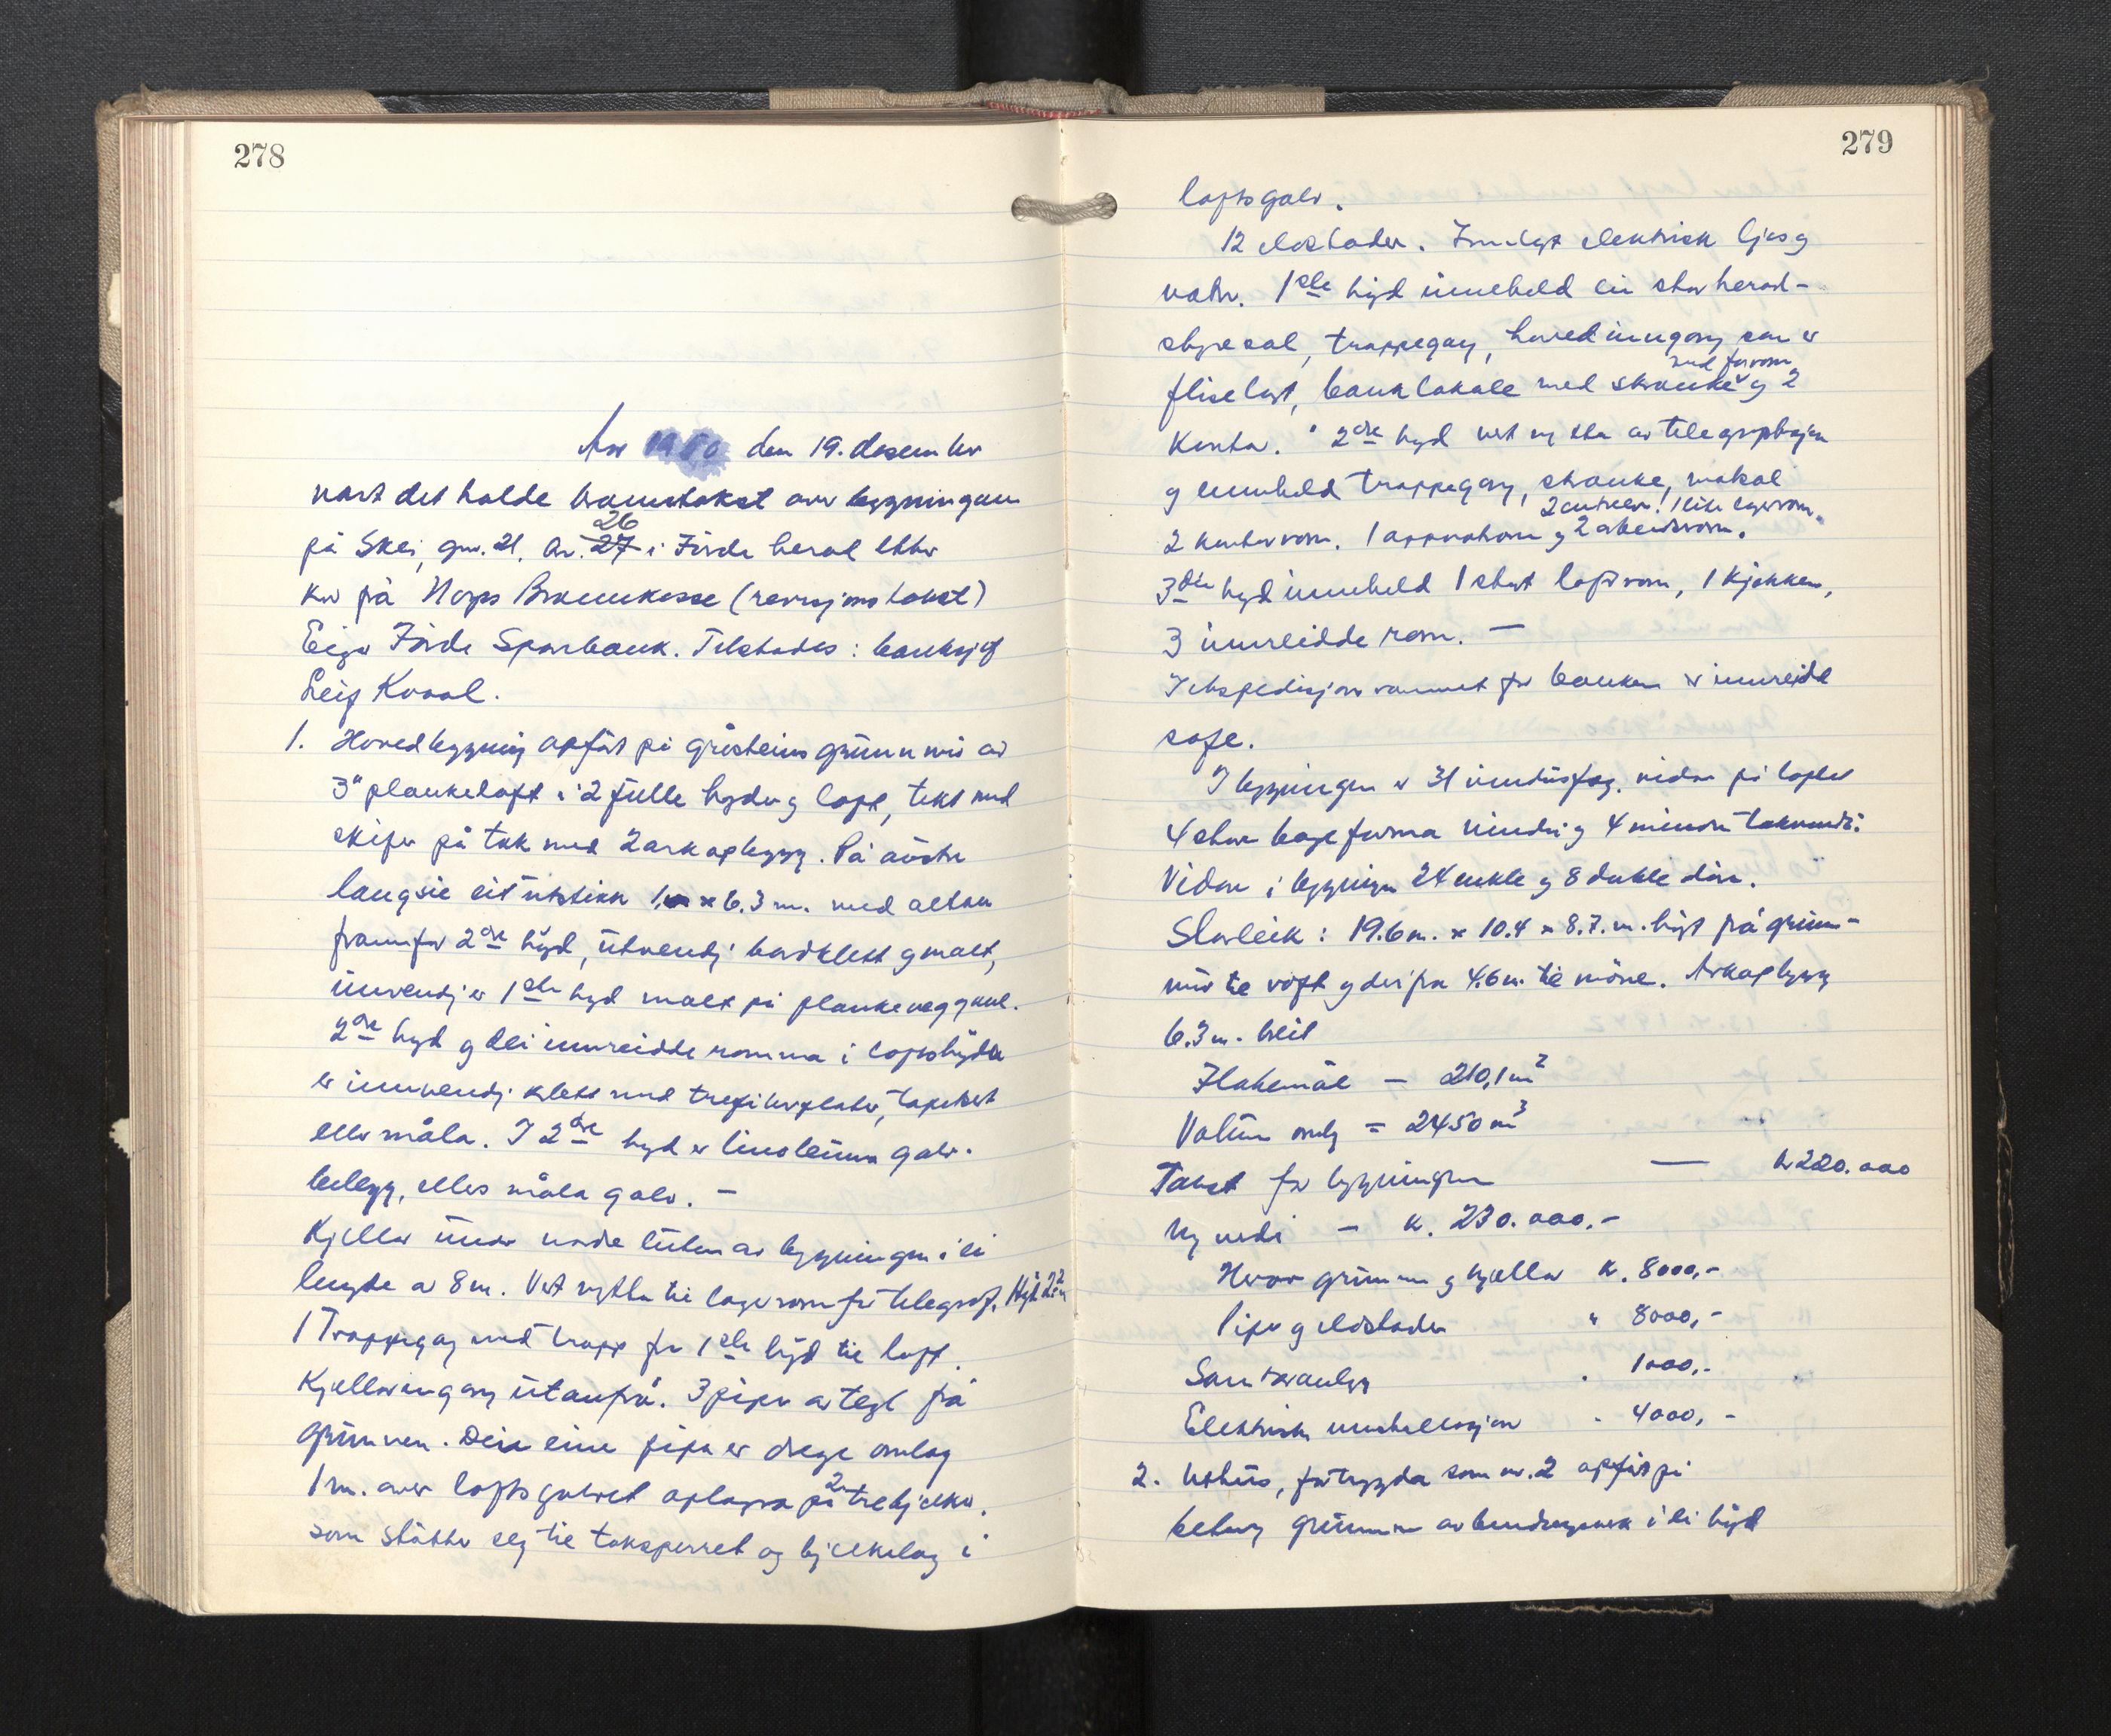 278
År 1950 den 19. desember
vart det halde branntakst over bygningane
på Skei, gnr. 21, br. 27 26 i Förde herad etter
krav på Norges Brannkasse (revisjonstakst)
Eigar Förde Sparebank. Tilstades: banksjef
Leif Kvaal.
1. Hovedbygning opfört på gråsteins grunnmur av
3" plankeloft i 2 fulle högder og loft, tekt med
skifer på tak med 2 arkopbygg. På austre
langsie eit utstikk x 6.3 m. med altan
framfor 2dre högd, utvendig bordkledt og malt,
innvendig er 1ste högd malt på plankeveggane.
2dre högd og dei innreidde romma i loftshögda
er innvendig kledt med trefiberplater, tapetsert
eller måla. I 2dre högd er linoleum golv-
belegg, elles måla golv. —
Kjellar under nordre luten av bygningen i ei
lengde av 8 m. Vert nytta til lagerrom for telegraf. Högd 2.2 m
1 Trappegang med trapp fra 1ste högd til loft.
Kjellarinngang utanfrå. 3 piper av tegl frå
grunnen. Den eine pipa er drege omlag
1 m. over loftsgolvet oplagra på 2 trebjelkar,
som støtter seg til taksperret og bjelkelag i
279
loftsgolv.
12 eldstader. Innlagt elektrisk ljos og
vatn. 1ste högd inneheld ein stor herad-
styresal, trappegang, hovedinngang som er
fliselagt, banklokale med skranke med forrom og 2
kontor. 2dre högd vert nytta av telegrafstasjon
og inneheld trappegang, skranke,
2 kontorrom. 1 apparatrom og 2 arbeidsrom. 2 entreer. 1 lite lagerrom.
3die högd inneheld 1 stort loftsrom, 1 kjökken,
3 innreidde rom. —
I ekspedisjonsrommet for banken er innreidd
safe.
I bygningen er 31 vindusfag, vidare på loftet
4 store bogeforma vindu og 4 mindre takvindu.
Vidare i bygningen 24 enkle og 8 doble dörer.
Storleik: 19.6 m. x 10.4 x 8.7. m. högt frå grunn-
mur til röft og derifra 4.6 m. til möne. Arkopbygg
6.3 m. breit
Flatemål — 210,1 m2
Volum omlag = 2450 m3
Takst for bygningen — kr 220.000
Ny verdi — kr. 230.000.-
Herav grunnmur og kjellar kr. 8000,-
Piper og eldstader " 8000,-
Sanitæranlegg " 1000,-
Elektrisk installasjon " 4000,-
2. Uthus, fortrygda som nr. 2 opfört på
betong grunnmur av bindingsverk i ei högd